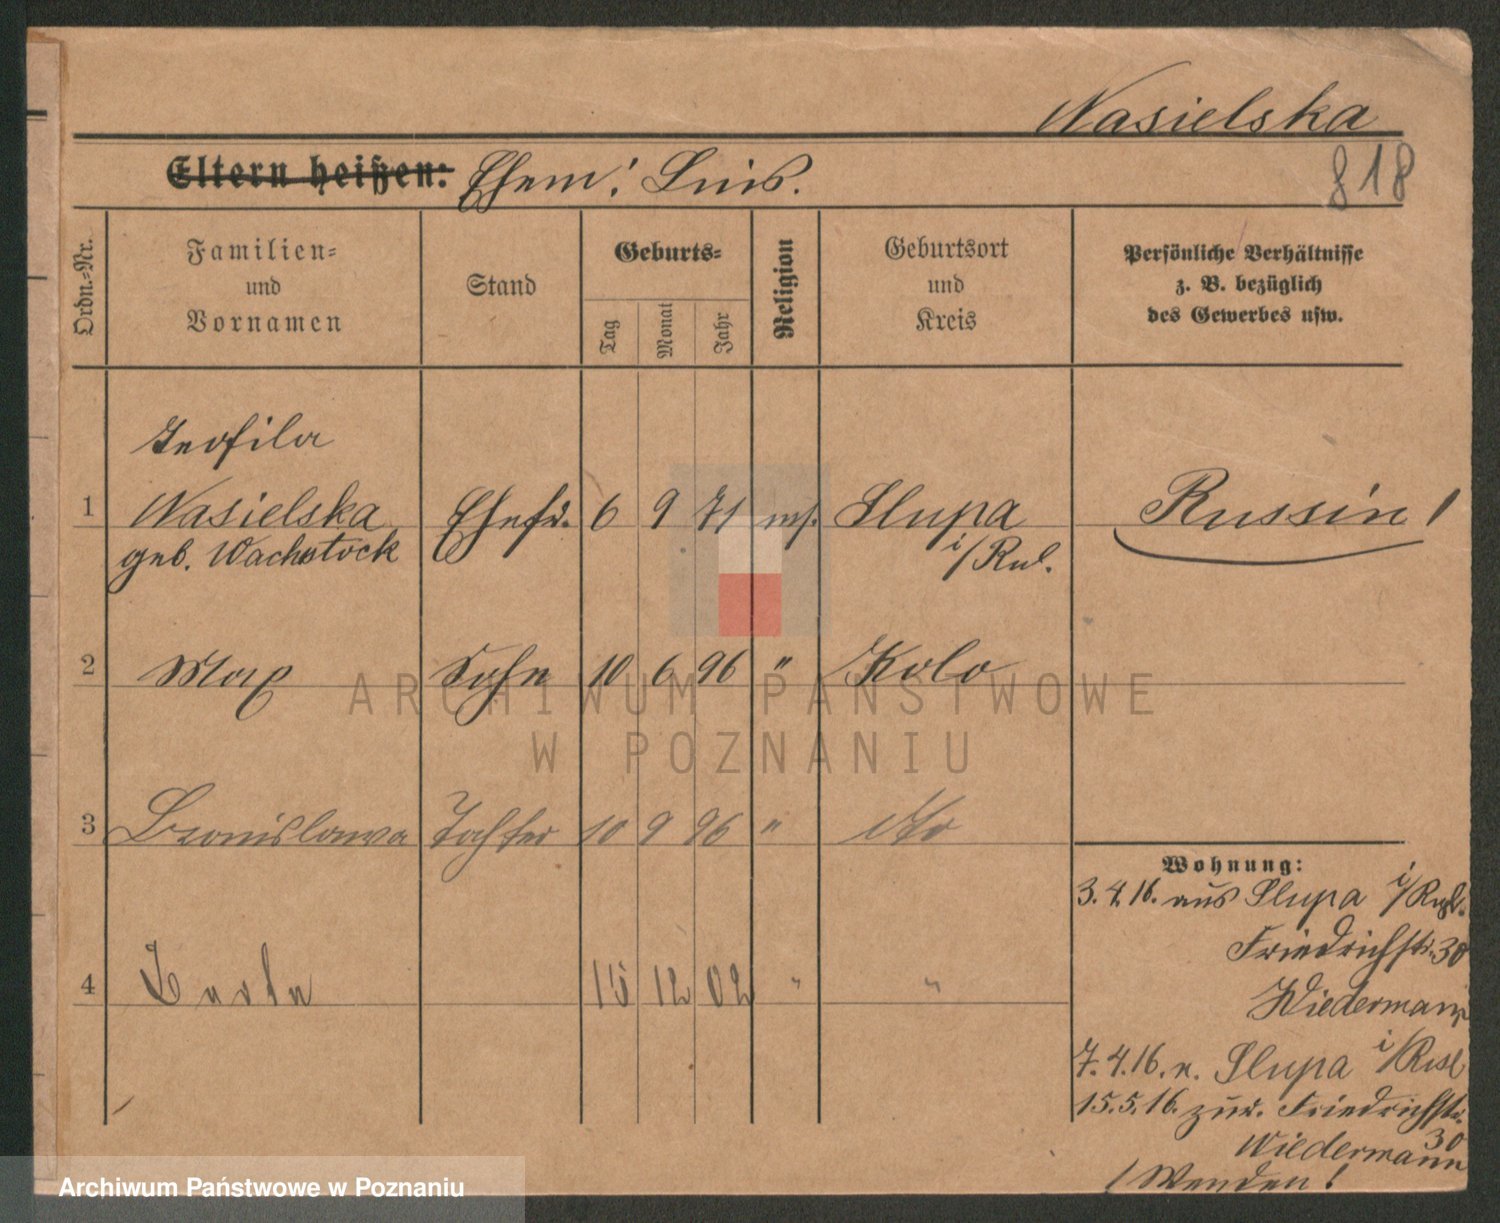 Wasielska
818
Eltern heißen: Ehem: Luis.
Ordn.-Nr.
Familien-
und
Vornamen
Stand
Geburts-
Tag
Monat
Jahr
Religion
Geburtsort
und
Kreis
Persönliche Verhältnisse
z. B. bezüglich
des Gewerbes usw.
Teofila
1 Wasielska Ehefr. 6 9 71 mos. Slupa Russin!
geb. Wachstock i/Rul.
2 Max Sohn 10 6 96 " Kolo
3 Bronislawa Tochter 10 9 96 " dto
Wohnung:
3.4.16. aus Slupa i/Rußl.
Friedrichstr. 30
Wiedermann
4 15 12 02 " "
7.4.16. n. Slupa i/Rusl
15.5.16. zur. Friedrichstr.
30
Wiedermann
/ Wenden!
ARCHIWUM PAŃSTWOWE
W POZNANIU
Archiwum Państwowe w Poznaniu